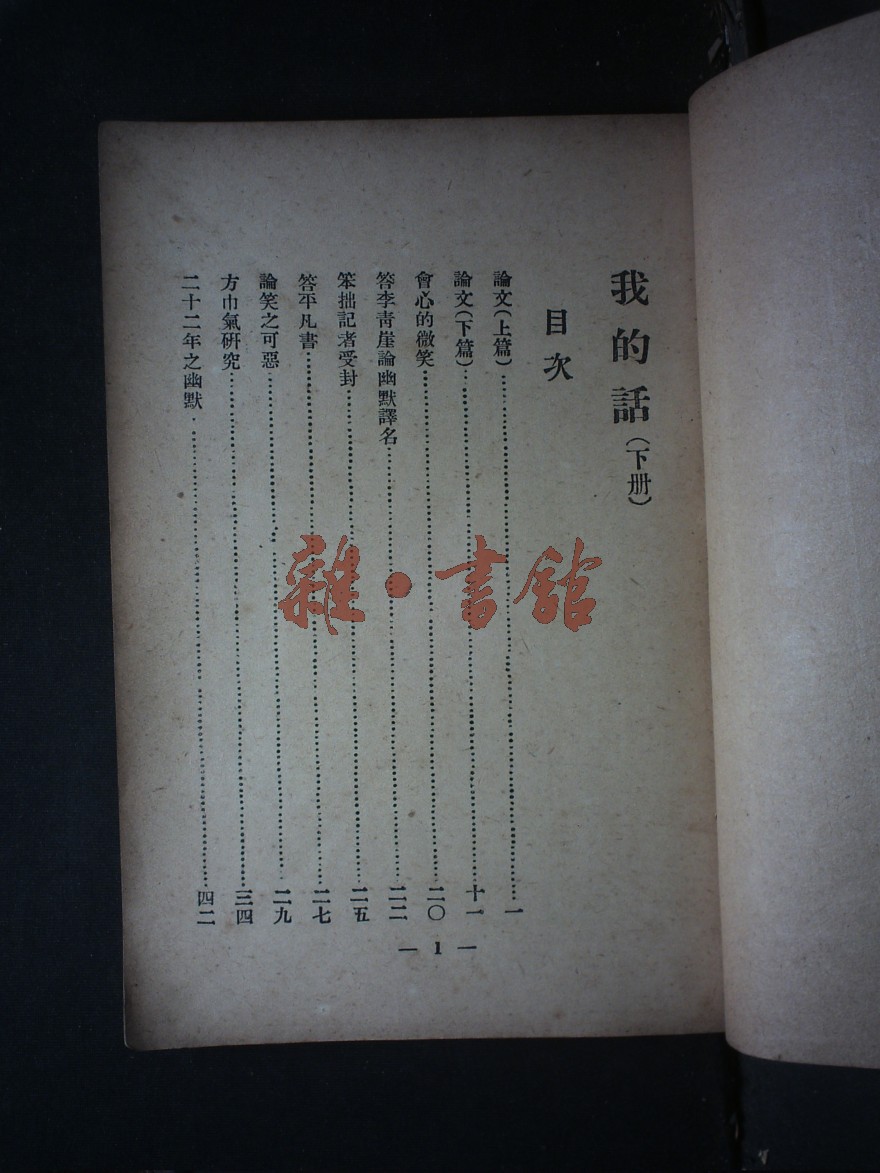 我的話(下册)
目次
論文(上篇)……一
論文(下篇)……十一
會心的微笑……二〇
答李青崖論幽默譯名……二二
笨拙記者受封……二五
答平凡書……二七
論笑之可惡……二九
方巾氣研究……三四
二十二年之幽默……四二
— 1 —
雜·書館